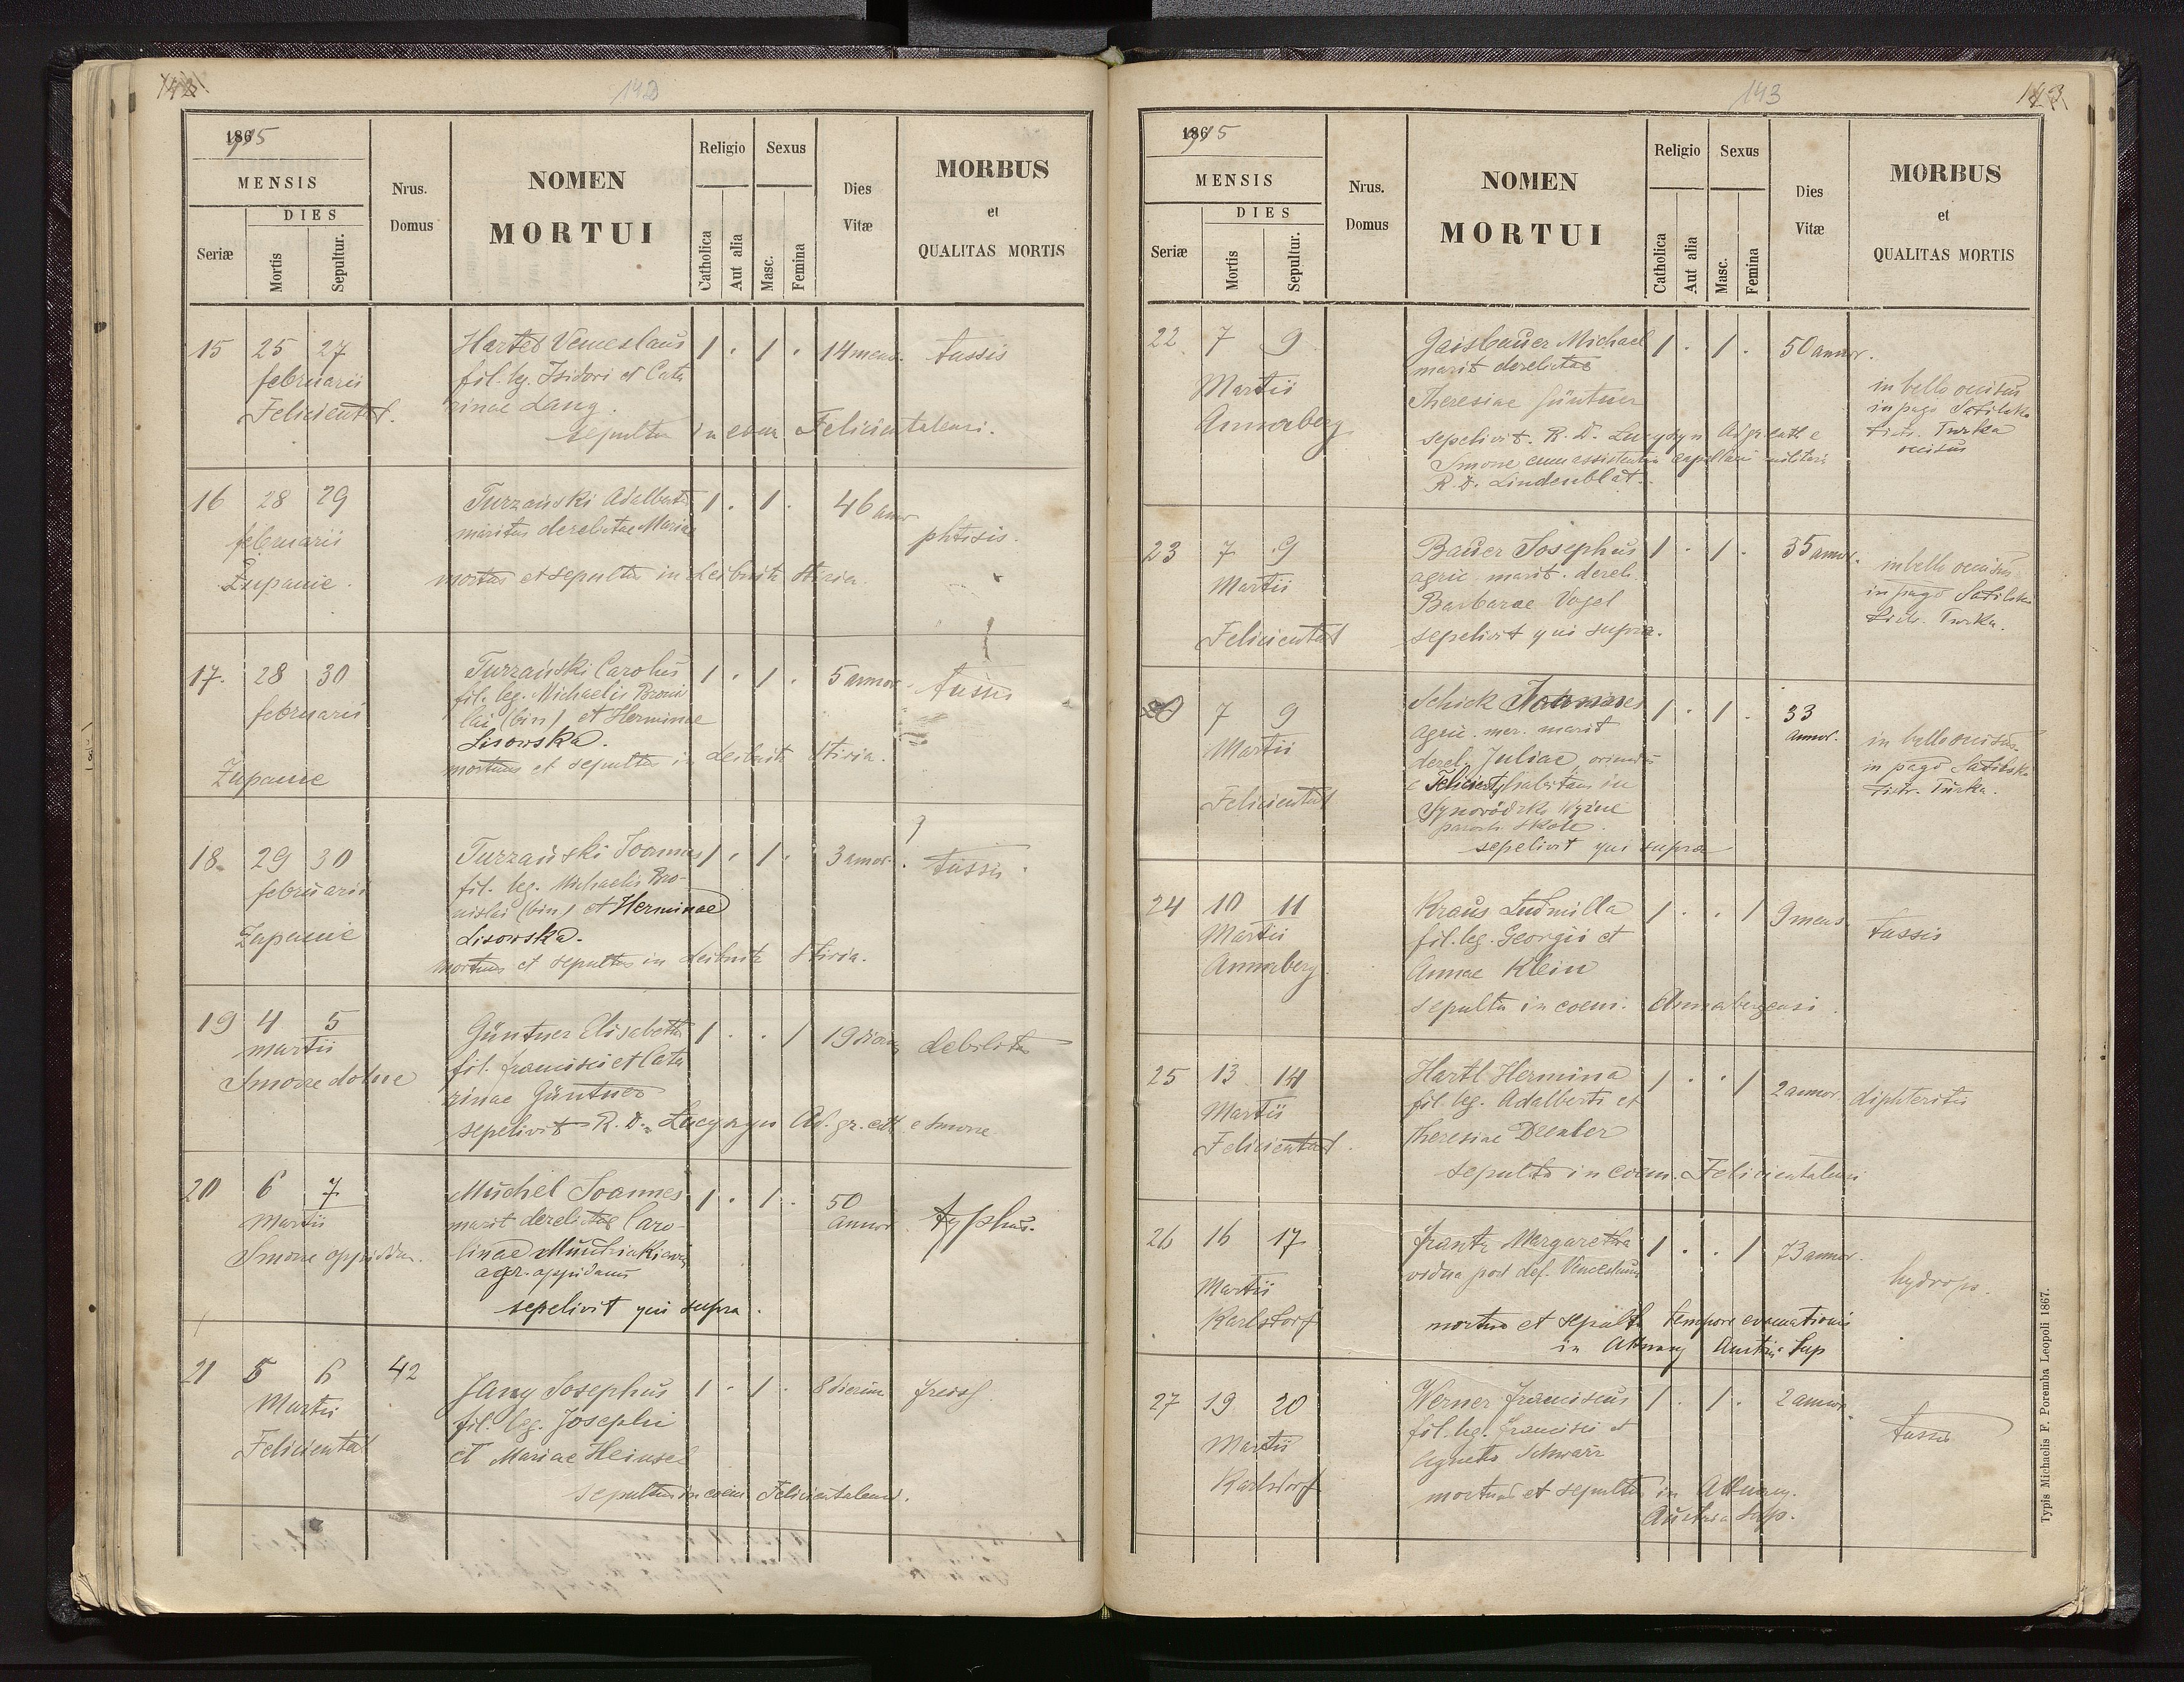 142
142
1865
915
MENSIS
DIES
Seriæ
Mortis
Sepultur.
Nrus.
Domus
NOMEN
MORTUI
Religio
Sexus
Catholica
Aut alia
Masc.
Femina
Dies
Vitæ
MORBUS
et
QUALITAS MORTIS
15 25 27
februarii
Felicienthal.
Hartel Venceslaus
fil. leg. Isidori et Cata
rinae Lang.
1 . 1 . 14 mens. tussis
sepultus in coem Felicientalensi.
16 28 29
februarii
Żupanie.
Turzański Adalbertus
maritus derelictae Mariae
1 . 1 . 46 annor
phtisis.
mortuus et sepultus in Leibnitz Stiria.
17. 28 30
februarii
Żupanie
Turzański Carolus
fil. leg. Michaelis Broni
lai (bin) et Herminae
Lisowska.
1 . 1 . 5 annor. tussis
mortuus et sepultus in Leibnitz Stiria.
18. 29 30
februarii
Żupanie
Turzański Joannes
fil. leg. Michaelis Bro-
nislai (bin) et Herminae
Lisowska.
1 . 1 . 3 annor. tussis.
mortuus et sepultus in Leibnitz Stiria.
19 4 5
martii
Smorze dolne
Güntner Elisabetha
fil. francisci et Cata
rinae Güntner
1 . . 1 19 dierum debilitas
sepelivit R. D. Lucyszyn Ad. gr. cath. e Smorze
20 6 7
Martii
Smorze oppidum.
Muchel Joannes
marit derelictae Caro-
linae
agr. oppidanus
1 . 1 . 50
annor. typhus.
sepelivit qui supra.
21 5 6 42
Martii
Felicienthal
Jany Josephus
fil. leg. Josephi
et Mariae Heinsel
1 . 1 . 8 dierum freisl
sepultus in coem. Felicientalensi.
143
143
1865
915
MENSIS
DIES
Seriæ
Mortis
Sepultur.
Nrus.
Domus
NOMEN
MORTUI
Religio
Sexus
Catholica
Aut alia
Masc.
Femina
Dies
Vitæ
MORBUS
et
QUALITAS MORTIS
22 7 9
Martii
Annaberg
Gaisbauer Michael
marit derelictae
Theresiae Güntner
1 . 1 . 50 annor.
in bello occisus
in pago
distr. Turka
occisus
sepelivit. R. D. Lucyszyn Ad gr. cath e
Smorze cum assistentia capellani militaris
R. D. Lindenblat.
23 7 9
Martii
Felicienthal
Bauer Josephus
agric. marit. derel.
Barbarae Vogel
sepelivit qui supra.
1 . 1 . 35 annor.
in bello occisus
in pago
distr. Turka.
7 9
Martii
Felicienthal
Schick Joannes
agric. mer. marit
derel. Juliae, oriundus
e Felicient, habitans in
Synowódzko Wyżne
paroch. Skole.
sepelivit qui supra
1 . 1 . 33
annor.
in bello occisus
in pago
distr. Turka.
24 10 11
Martii
Annaberg.
Kraus Ludmilla
fil. leg. Georgii et
Annae Klein
1 . . 1 9 mens. tussis
sepulta in coem. Annabergensi.
25 13 14
Martii
Felicienthal.
Hartl Hermina
fil. leg. Adalberti et
Theresiae Drexler
1 . . 1 2 annor. diphteritis
sepulta in coem. Felicientalensi
26 16 17
Martii
Karlsdorf
frantz Margaretha
vidua post def. Venceslaum
1 . . 1 73 annor.
hydrops.
mortua et sepulta tempore evacuationis
in Attnang Austria Sup
27 19 20
Martii
Karlsdorf
Werner franciscus
fil. leg. francisci et
Agnetis Schwarz
1 . 1 . 2 annor.
tussis
mortuus et sepultus in Attnang.
Austria Sup.
Typis Michaelis F. Poremba Leopoli 1867.